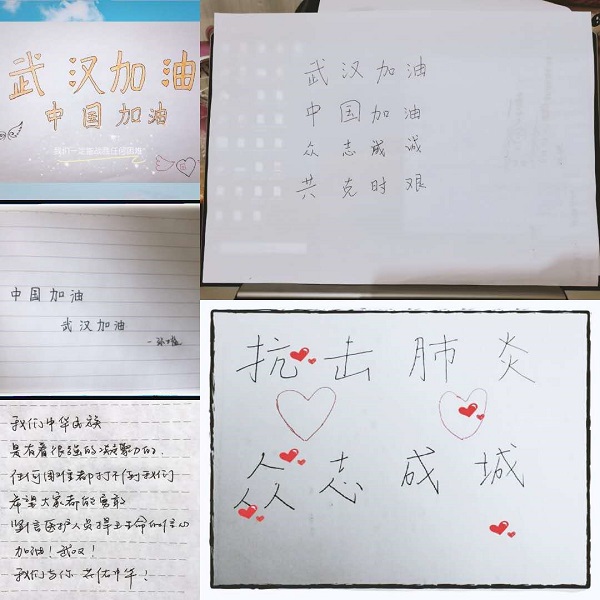 武汉加油
中国加油
我们一定能战胜任何困难
武汉加油
中国加油
众志成诚
共克时艰
中国加油
武汉加油
抗击肺炎
众志成城
我们中华民族
是有着很强的凝聚力的,
任何困难都打不倒我们
希望大家都能勇敢
坚信医护人员捍卫生命的信心
加油!武汉!
我们与你 共佑中华!